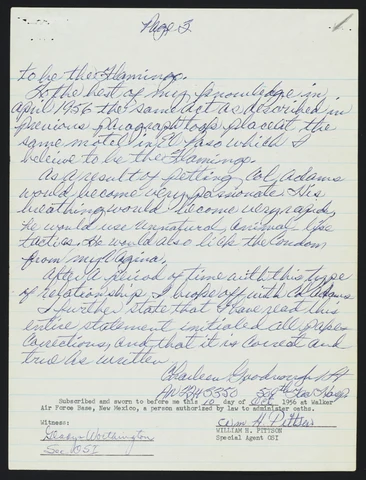 Page 3
to be the Flamingo.
To the best of my knowledge in
April 1956 the same act as described in
previous paragraph took place at the
same motel in El Paso which I
beleive to be the Flamingo.
As a result of petting Col. Adams
would become very passionate. His
breathing would become very rapid,
he would use unnatural, animal like
tactics. He would also lick the condom
from my vagina.
After a period of time with this type
of relationship I broke off with Col Adams
I further state that I have read this
entire statement initialed all pages
corrections, and that it is correct and
true as written
Subscribed and sworn to before me this 10 day of Oct 1956 at Walker
Air Force Base, New Mexico, a person authorized by law to administer oaths.
Witness:
WILLIAM H. PITTSON
Special Agent OSI
Gladys Worthington
Sec, OSI